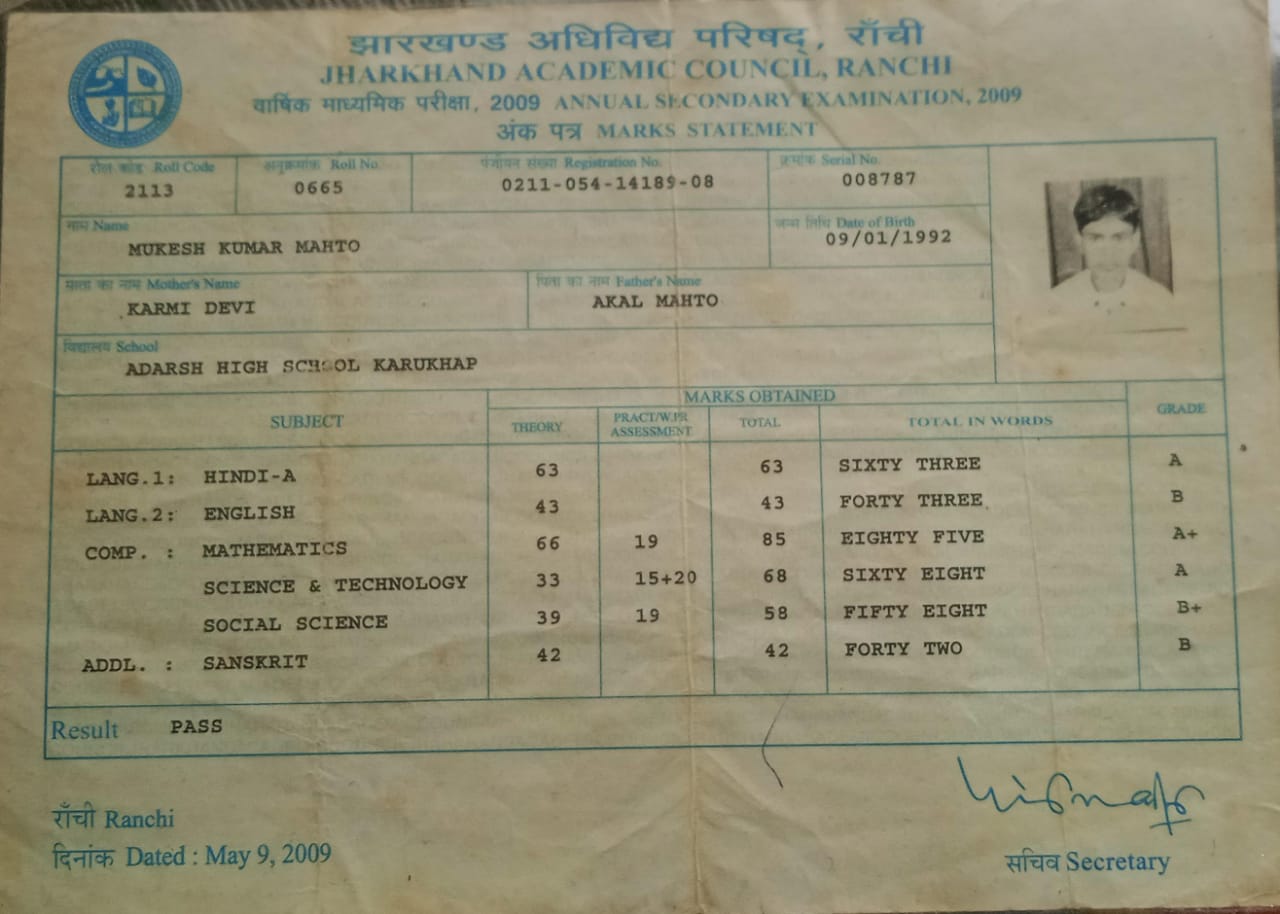 झारखण्ड अधिविद्य परिषद्, राँची
JHARKHAND ACADEMIC COUNCIL, RANCHI
वार्षिक माध्यमिक परीक्षा, 2009 ANNUAL SECONDARY EXAMINATION, 2009
अंक पत्र MARKS STATEMENT
रोल कोड Roll Code अनुक्रमांक Roll No. पंजीयन संख्या Registration No. क्रमांक Serial No.
2113 0665 0211-054-14189-08 008787
नाम Name जन्म तिथि Date of Birth
MUKESH KUMAR MAHTO 09/01/1992
माता का नाम Mother's Name पिता का नाम Father's Name
KARMI DEVI AKAL MAHTO
विद्यालय School
ADARSH HIGH SCHOOL KARUKHAP
SUBJECT MARKS OBTAINED GRADE
THEORY PRACT/W.PR ASSESSMENT TOTAL TOTAL IN WORDS
LANG.1: HINDI-A 63 63 SIXTY THREE A
LANG.2: ENGLISH 43 43 FORTY THREE B
COMP. : MATHEMATICS 66 19 85 EIGHTY FIVE A+
SCIENCE & TECHNOLOGY 33 15+20 68 SIXTY EIGHT A
SOCIAL SCIENCE 39 19 58 FIFTY EIGHT B+
ADDL. : SANSKRIT 42 42 FORTY TWO B
Result PASS
राँची Ranchi
दिनांक Dated : May 9, 2009
सचिव Secretary